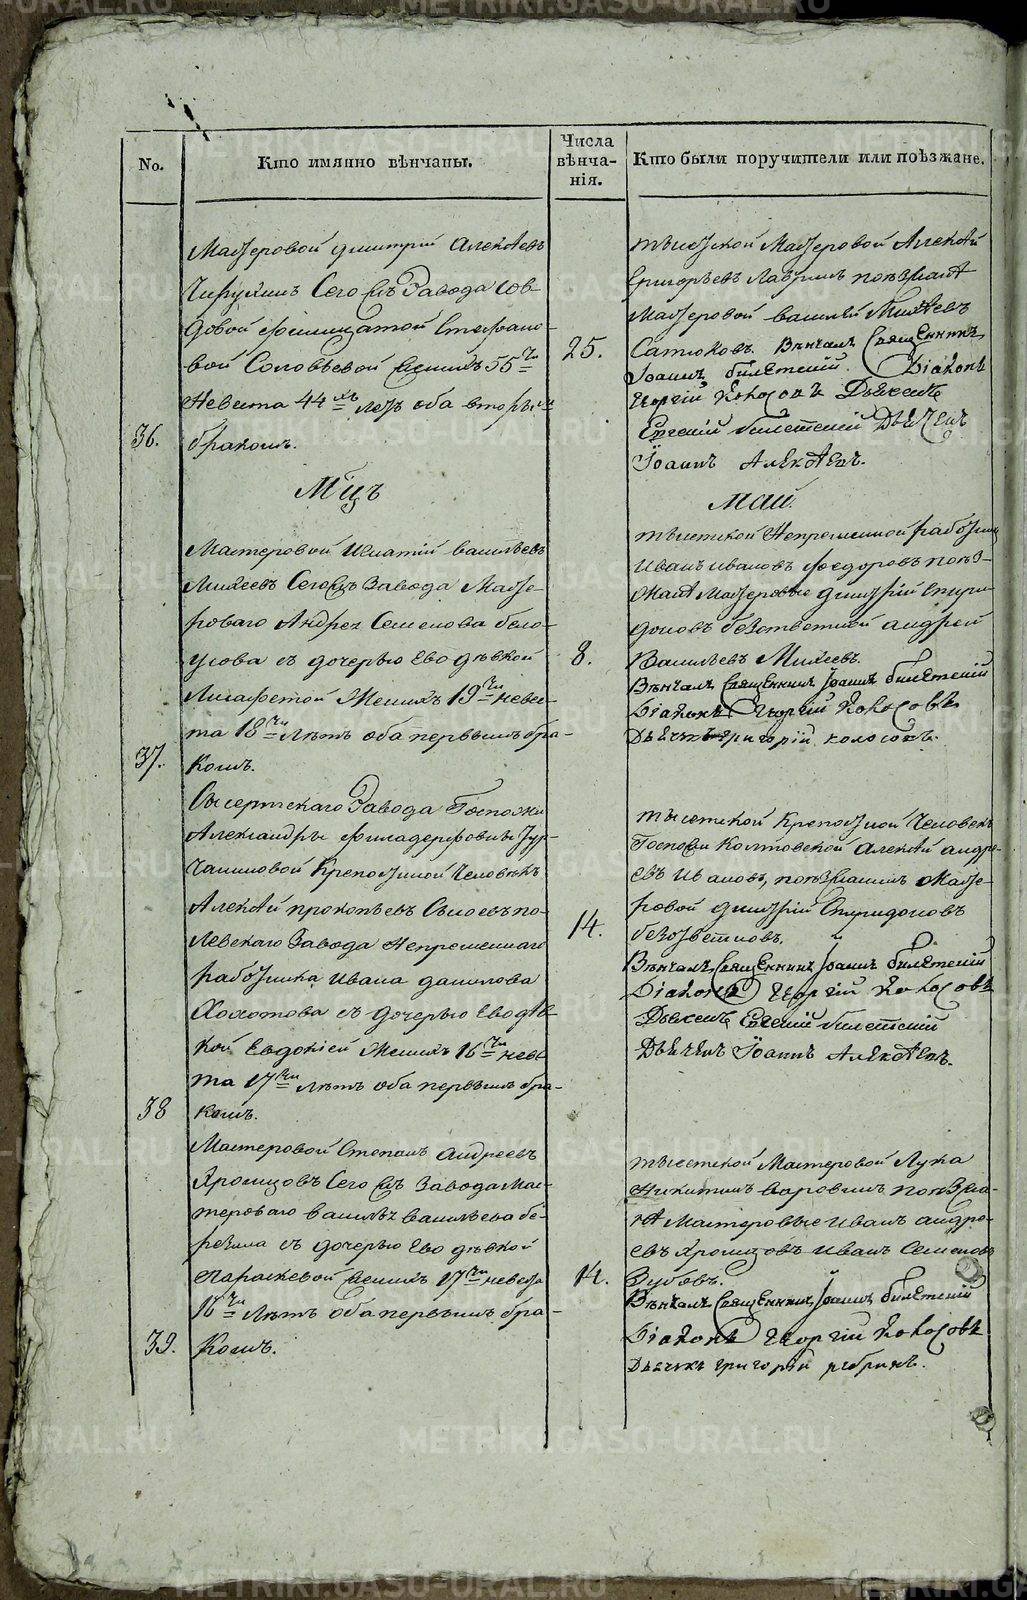 No.
Кто имянно вѣнчаны.
Числа
вѣнча-
нія.
Кто были поручители или поѣзжане.
Мастеровой Дмитрій Алексѣевъ
Сего Завода совдо-
довой Стефано-
вой Соловьевой женихъ 55ти
Невеста 44хъ лѣтъ оба вторымъ
36.
бракомъ.
25.
тысяцкой Мастеровой Алексѣй
Григорьевъ поѣзжанѣ
Мастеровой Василій Михѣевъ
Сатюковъ. Вѣнчалъ Священникъ
Іоаннъ Билетскій. Діаконъ
Георгій Колосовъ
Евгеній Дьячекъ
Іоаннъ Алексѣевъ.
Мцъ
Май.
Мастеровой Игнатій Васильевъ
Михѣевъ Сего Завода Масте-
роваго Андрея Семенова Бело-
усова съ дочерью Ево дѣвкой
Женихъ 19ти невес-
та 18ти лѣтъ оба первымъ бра-
37.
комъ.
8.
тысятской Непременной работникъ
Иванъ Ивановъ Федоровъ поѣз-
жанѣ Мастеровые Дмитрій Спири-
доновъ Андрей
Васильевъ Михѣевъ.
Вѣнчалъ Священникъ Іоаннъ Билетскій
Діаконъ Георгій Колосовъ
Дьячекъ Григорій Колосовъ.
Сысертскаго Завода Госпожи
Александры Тур-
чаниновой Крепостной человѣкъ
Алексѣй Прокопьевъ по-
левскаго Завода Непременнаго
работника Ивана Данилова
Хохотова съ дочерью Ево дѣв-
кой Евдокіей Женихъ 16ти неве-
та 17ти лѣтъ оба первымъ бра-
38
комъ.
14.
тысятской Крепостной Человекъ
Колтовской Алексѣй Андре-
евъ Ивановъ, поѣзжанинъ Масте-
ровой Дмитрій Спиридоновъ
Вѣнчалъ Священникъ Іоаннъ Билетскій
Діаконъ Георгій Колосовъ
Евгеній Билетскій
Дьячекъ Іоаннъ Алексѣевъ.
Мастеровой Степанъ Андреевъ
Хромцовъ Сего Завода Мас-
тероваго Василья Васильева Бе-
резина съ дочерью Ево дѣвкой
Парасковеой женихъ 17ти невеста
16ти лѣтъ оба первымъ бра-
39.
комъ.
14.
тысятской Мастеровой Лука
Никитинъ поѣзжа-
нѣ Мастеровые Иванъ Андре-
евъ Хромцовъ Иванъ Семеновъ
Зубовъ.
Вѣнчалъ Священникъ Іоаннъ Билетскій
Діаконъ Георгій Колосовъ
Дьячекъ Григорій
METRIKI.GASO-URAL.RU